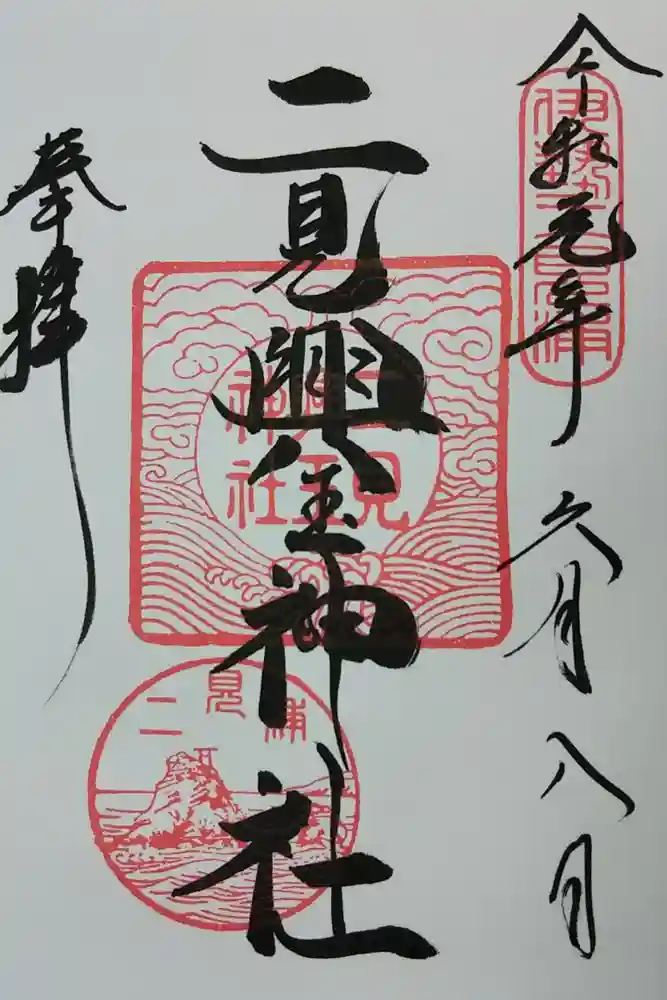 令和元年六月八日
伊勢二見浦
二見興玉神社
二見
興玉
神社
二見浦
奉拝